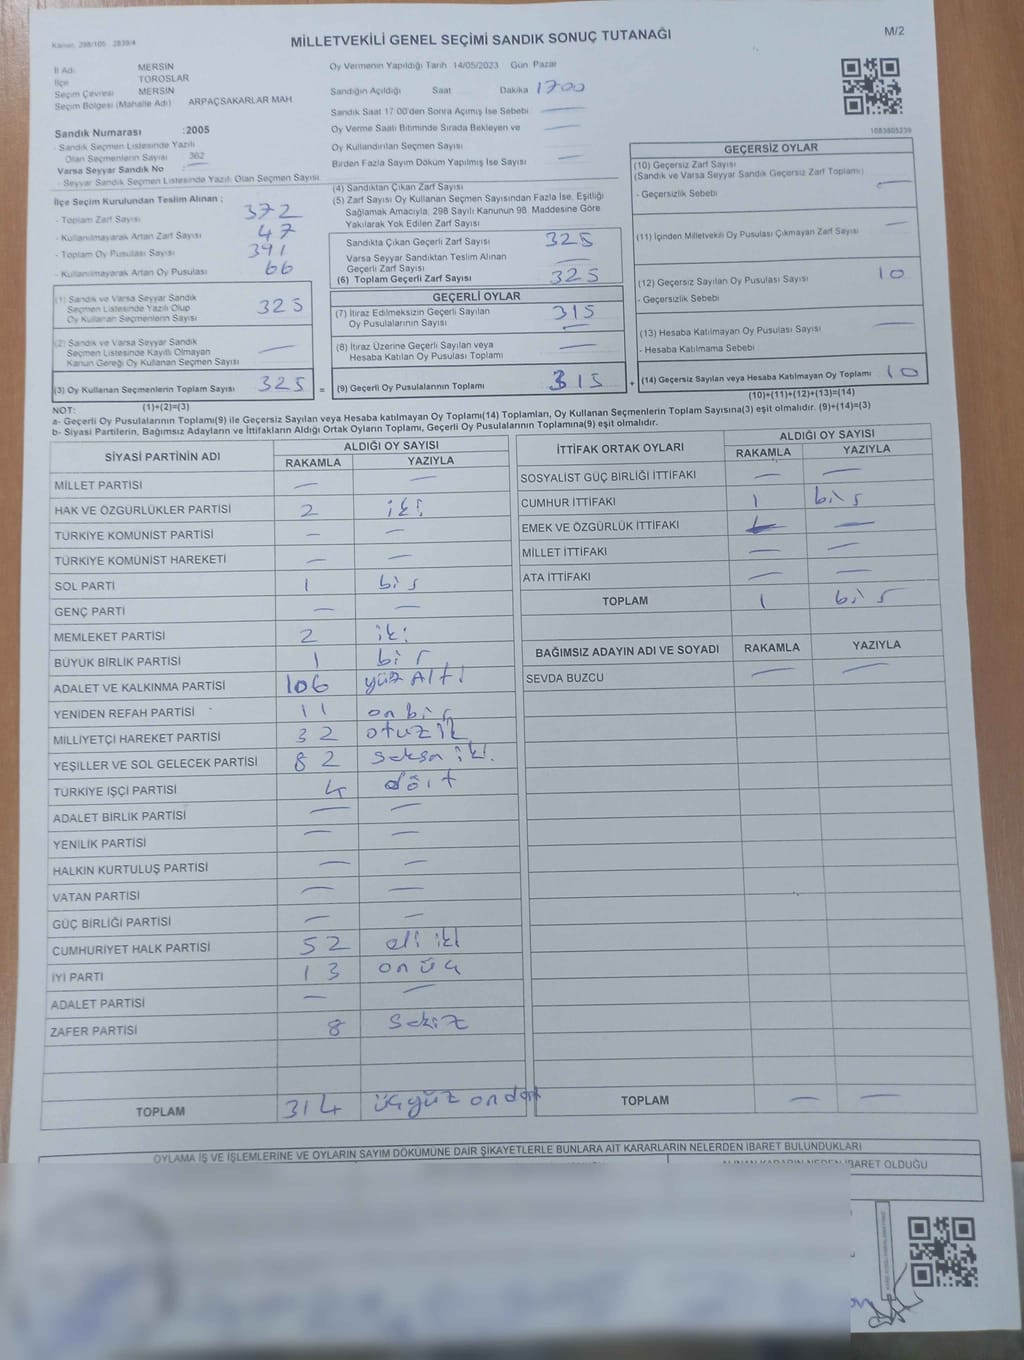 Kanun: 298/105 2839/4
MİLLETVEKİLİ GENEL SEÇİMİ SANDIK SONUÇ TUTANAĞI
M/2
İl Adı: MERSİN
İlçe TOROSLAR
Seçim Çevresi MERSİN
Seçim Bölgesi (Mahalle Adı) ARPAÇSAKARLAR MAH
Oy Vermenin Yapıldığı Tarih 14/05/2023 Gün Pazar
Sandığın Açıldığı Saat Dakika 1700
Sandık Saat 17:00'den Sonra Açımış İse Sebebi —
Oy Verme Saati Bitiminde Sırada Bekleyen ve
Oy Kullandırılan Seçmen Sayısı —
Birden Fazla Sayım Döküm Yapılmış İse Sayısı —
1083805239
Sandık Numarası :2005
- Sandık Seçmen Listesinde Yazılı
Olan Seçmenlerin Sayısı 362
Varsa Seyyar Sandık No —
- Seyyar Sandık Seçmen Listesinde Yazılı Olan Seçmen Sayısı
İlçe Seçim Kurulundan Teslim Alınan ;
- Toplam Zarf Sayısı 372
- Kullanılmayarak Artan Zarf Sayısı 47
- Toplam Oy Pusulası Sayısı 391
- Kullanılmayarak Artan Oy Pusulası 66
(1) Sandık ve Varsa Seyyar Sandık
Seçmen Listesinde Yazılı Olup
Oy Kullanan Seçmenlerin Sayısı 325
(2) Sandık ve Varsa Seyyar Sandık
Seçmen Listesinde Kayıtlı Olmayan
Kanun Gereği Oy Kullanan Seçmen Sayısı —
(3) Oy Kullanan Seçmenlerin Toplam Sayısı 325 =
(1)+(2)=(3)
(4) Sandıktan Çıkan Zarf Sayısı
(5) Zarf Sayısı Oy Kullanan Seçmen Sayısından Fazla İse, Eşitliği
Sağlamak Amacıyla; 298 Sayılı Kanunun 98. Maddesine Göre
Yakılarak Yok Edilen Zarf Sayısı
Sandıkta Çıkan Geçerli Zarf Sayısı 325
Varsa Seyyar Sandıktan Teslim Alınan
Geçerli Zarf Sayısı —
(6) Toplam Geçerli Zarf Sayısı 325
GEÇERLİ OYLAR
(7) İtiraz Edilmeksizin Geçerli Sayılan
Oy Pusulalarının Sayısı 315
(8) İtiraz Üzerine Geçerli Sayılan veya
Hesaba Katılan Oy Pusulası Toplamı —
(9) Geçerli Oy Pusulalarının Toplamı 315 +
GEÇERSİZ OYLAR
(10) Geçersiz Zarf Sayısı
(Sandık ve Varsa Seyyar Sandık Geçersiz Zarf Toplamı)
- Geçersizlik Sebebi —
(11) İçinden Milletvekili Oy Pusulası Çıkmayan Zarf Sayısı —
(12) Geçersiz Sayılan Oy Pusulası Sayısı 10
- Geçersizlik Sebebi
(13) Hesaba Katılmayan Oy Pusulası Sayısı —
- Hesaba Katılmama Sebebi
(14) Geçersiz Sayılan veya Hesaba Katılmayan Oy Toplamı 10
(10)+(11)+(12)+(13)=(14)
NOT:
a- Geçerli Oy Pusulalarının Toplamı(9) ile Geçersiz Sayılan veya Hesaba katılmayan Oy Toplamı(14) Toplamları, Oy Kullanan Seçmenlerin Toplam Sayısına(3) eşit olmalıdır. (9)+(14)=(3)
b- Siyasi Partilerin, Bağımsız Adayların ve İttifakların Aldığı Ortak Oyların Toplamı, Geçerli Oy Pusulalarının Toplamına(9) eşit olmalıdır.
SİYASİ PARTİNİN ADI ALDIĞI OY SAYISI
RAKAMLA YAZIYLA
MİLLET PARTİSİ — —
HAK VE ÖZGÜRLÜKLER PARTİSİ 2 iki
TÜRKİYE KOMÜNİST PARTİSİ — —
TÜRKİYE KOMÜNİST HAREKETİ — —
SOL PARTİ 1 bir
GENÇ PARTİ — —
MEMLEKET PARTİSİ 2 iki
BÜYÜK BİRLİK PARTİSİ 1 bir
ADALET VE KALKINMA PARTİSİ 106 yüz Altı
YENİDEN REFAH PARTİSİ 11 on bir
MİLLİYETÇİ HAREKET PARTİSİ 32 otuz ik
YEŞİLLER VE SOL GELECEK PARTİSİ 82 seksn iki
TÜRKİYE İŞÇİ PARTİSİ 4 dört
ADALET BİRLİK PARTİSİ — —
YENİLİK PARTİSİ — —
HALKIN KURTULUŞ PARTİSİ — —
VATAN PARTİSİ — —
GÜÇ BİRLİĞİ PARTİSİ — —
CUMHURİYET HALK PARTİSİ 52 elli iki
İYİ PARTİ 13 on üç
ADALET PARTİSİ — —
ZAFER PARTİSİ 8 sekiz
TOPLAM 314 üçyüz ondört
İTTİFAK ORTAK OYLARI ALDIĞI OY SAYISI
RAKAMLA YAZIYLA
SOSYALİST GÜÇ BİRLİĞİ İTTİFAKI — —
CUMHUR İTTİFAKI 1 bir
EMEK VE ÖZGÜRLÜK İTTİFAKI —
MİLLET İTTİFAKI — —
ATA İTTİFAKI — —
TOPLAM 1 bir
BAĞIMSIZ ADAYIN ADI VE SOYADI RAKAMLA YAZIYLA
SEVDA BUZCU — —
TOPLAM — —
OYLAMA İŞ VE İŞLEMLERİNE VE OYLARIN SAYIM DÖKÜMÜNE DAİR ŞİKAYETLERLE BUNLARA AİT KARARLARIN NELERDEN İBARET BULUNDUKLARI
ALINAN KARARIN NEDEN İBARET OLDUĞU